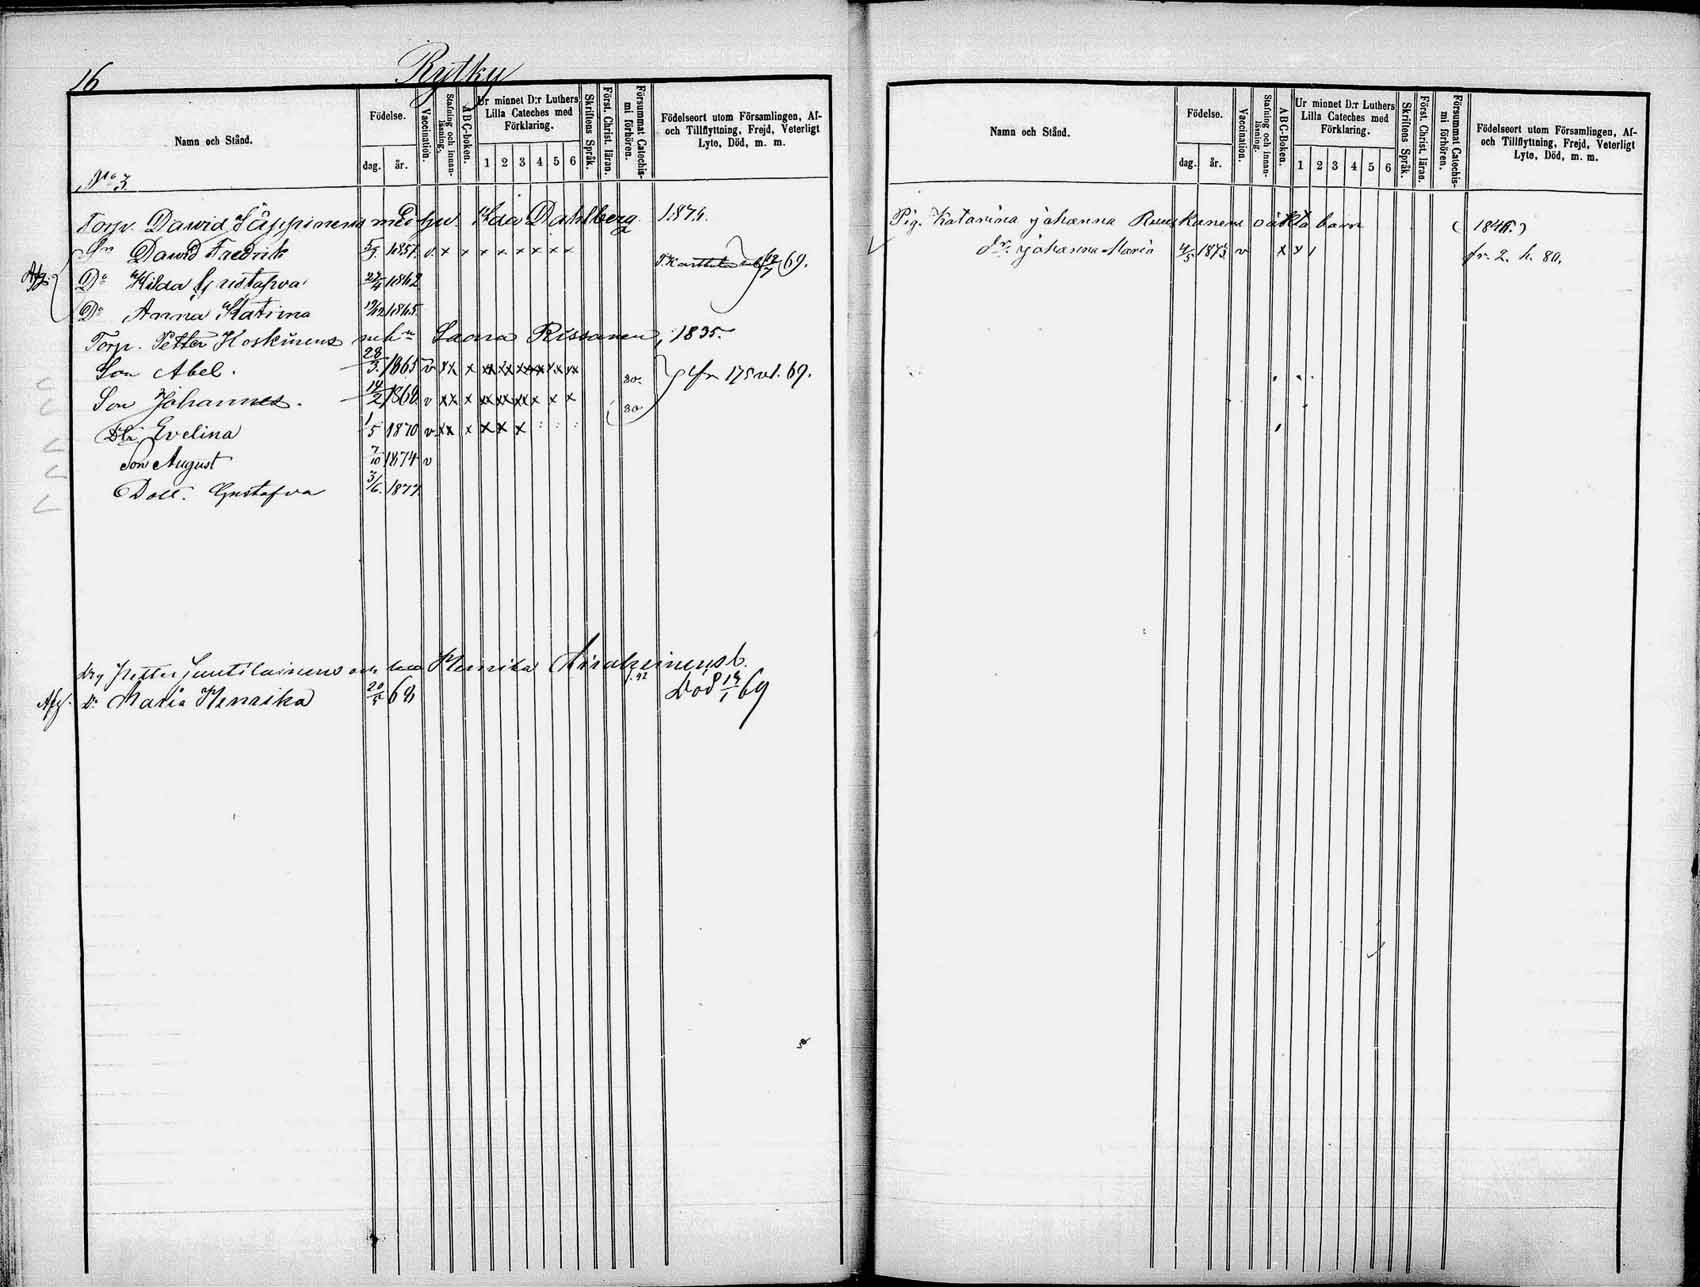 16
Rytky
Namn och Stånd.
Födelse.
dag. år.
Vaccination.
Stafning och innan-läsning.
ABC-boken.
Ur minnet D:r Luthers Lilla Cateches med Förklaring.
1 2 3 4 5 6
Skriftens Språk.
Först. Christ. läran.
Försummat Catechis-mi förhören.
Födelseort utom Församlingen, Af- och Tillflyttning, Frejd, Veterligt Lyte, Död, m. m.
No 3
Torp. Dawid Säppinens med hu. Ida Dahlberg 1874.
Dawid Fredrik 1857. v. x x x x x x x x x
Do Hilda Gustafva 1862 69.
Do Anna Katrina 1865
Torp. Petter Koskinens o h Saara Rissanen, 1835.
Son Abel. 28/3 1865 v xx x xx xx x xx xx xx fr 175 69.
Son Johannes. 14/2 1868 v xx x xx xx xx x x x 80
Evelina 1/5 1870 v xx x x x x
Son August 7/10 1874 v
Dott. Gustafva 3/6. 1877
Petter Lantilainens Henrika
Afg. Do Maria Henrika 20/5 68 Död 69
Namn och Stånd.
Födelse.
dag. år.
Vaccination.
Stafning och innan-läsning.
ABC-Boken.
Ur minnet D:r Luthers Lilla Cateches med Förklaring.
1 2 3 4 5 6
Skriftens Språk.
Först. Christ. läran.
Försummat Catechis-mi förhören.
Födelseort utom Församlingen, Af- och Tillflyttning, Frejd, Veterligt Lyte, Död, m. m.
Pig. Katarina Johanna Ruuskanens oäkta barn
Johanna Maria 1873 v x x fr. 2. h. 80.